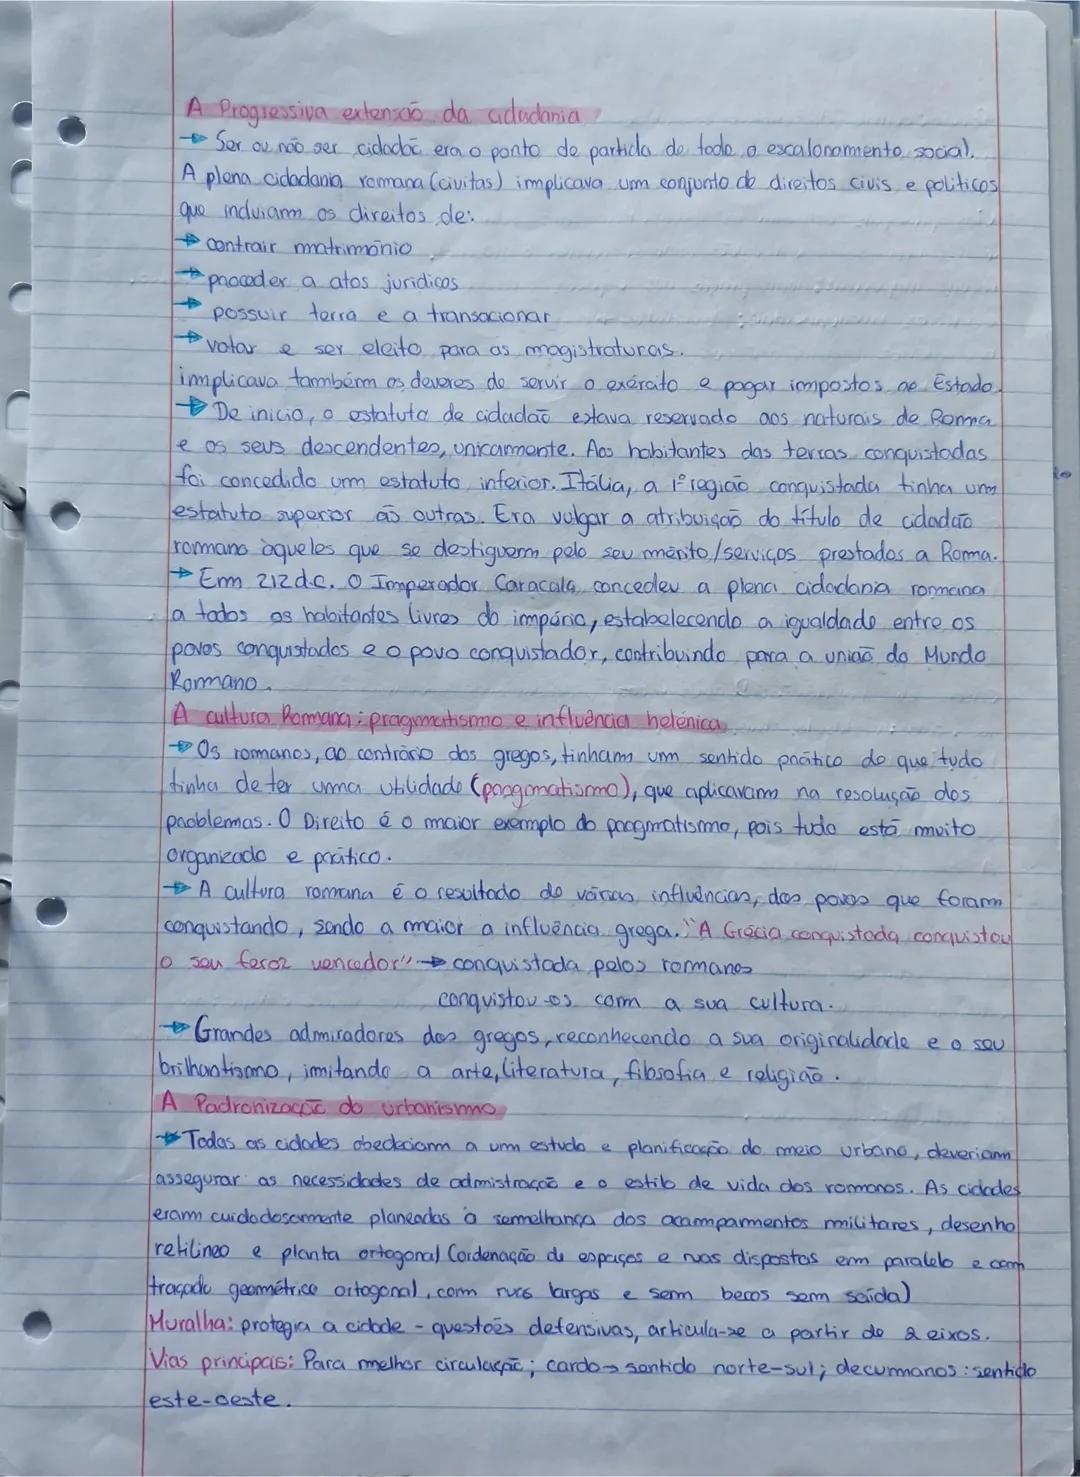 A Progressiva extensão da cidadania
→ Ser ou não ser cidadão era o ponto de partida de todo o escalonamento social.
A plena cidadania romana (civitas) implicava um conjunto de direitos civis e políticos
que incluiam os direitos de:
→ contrair matrimónio
→ proceder a atos jurídicos
→ possuir terra e a transacionar
→ votar e ser eleito para as magistraturas.
implicava também os deveres de servir o exército e pagar impostos ao Estado.
→ De inicio, o estatuto de cidadão estava reservado aos naturais de Roma
e os seus descendentes, unicamente. Aos habitantes das terras conquistadas
foi concedido um estatuto inferior. Itália, a 1ª região conquistada tinha um
estatuto superior às outras. Era vulgar a atribuição do título de cidadão
romano àqueles que se destiguem pelo seu mérito/serviços prestados a Roma.
→ Em 212 d.c. O Imperador Caracala, concedeu a plena cidadania romana
a todos os habitantes livres do império, estabelecendo a igualdade entre os
povos conquistados e o povo conquistador, contribuindo para a união do Mundo
Romano.
A cultura Romana: pragmatismo e influência helénica
→ Os romanos, ao contrário dos gregos, tinham um sentido prático de que tudo
tinha de ter uma utilidade (pragmatismo), que aplicavam na resolução dos
problemas. O Direito é o maior exemplo do pragmatismo, pois tudo está muito
organizado e prático.
→ A cultura romana é o resultado de várias influências, dos povos que foram
conquistando, sendo a maior a influência grega. "A Grécia conquistada conquistou
o seu feroz vencedor" → conquistada pelos romanos
conquistou-os com a sua cultura.
→ Grandes admiradores dos gregos, reconhecendo a sua originalidade e o seu
brilhantismo, imitando a arte, literatura, filosofia e religião.
A Padronização do urbanismo
→ Todas as cidades obedeciam a um estudo e planificação do meio urbano, deveriam
assegurar as necessidades de admistração e o estilo de vida dos romanos. As cidades
eram cuidadosamente planeadas à semelhança dos acampamentos militares, desenho
retilíneo e planta ortogonal (ordenação de espaços e ruas dispostas em paralelo e com
traçado geométrico ortogonal, com ruas largas e sem becos sem saída)
Muralha: protegia a cidade - questões defensivas, articula-se a partir de 2 eixos.
Vias principais: Para melhor circulação; cardo → sentido norte-sul; decumanos: sentido
este-oeste.